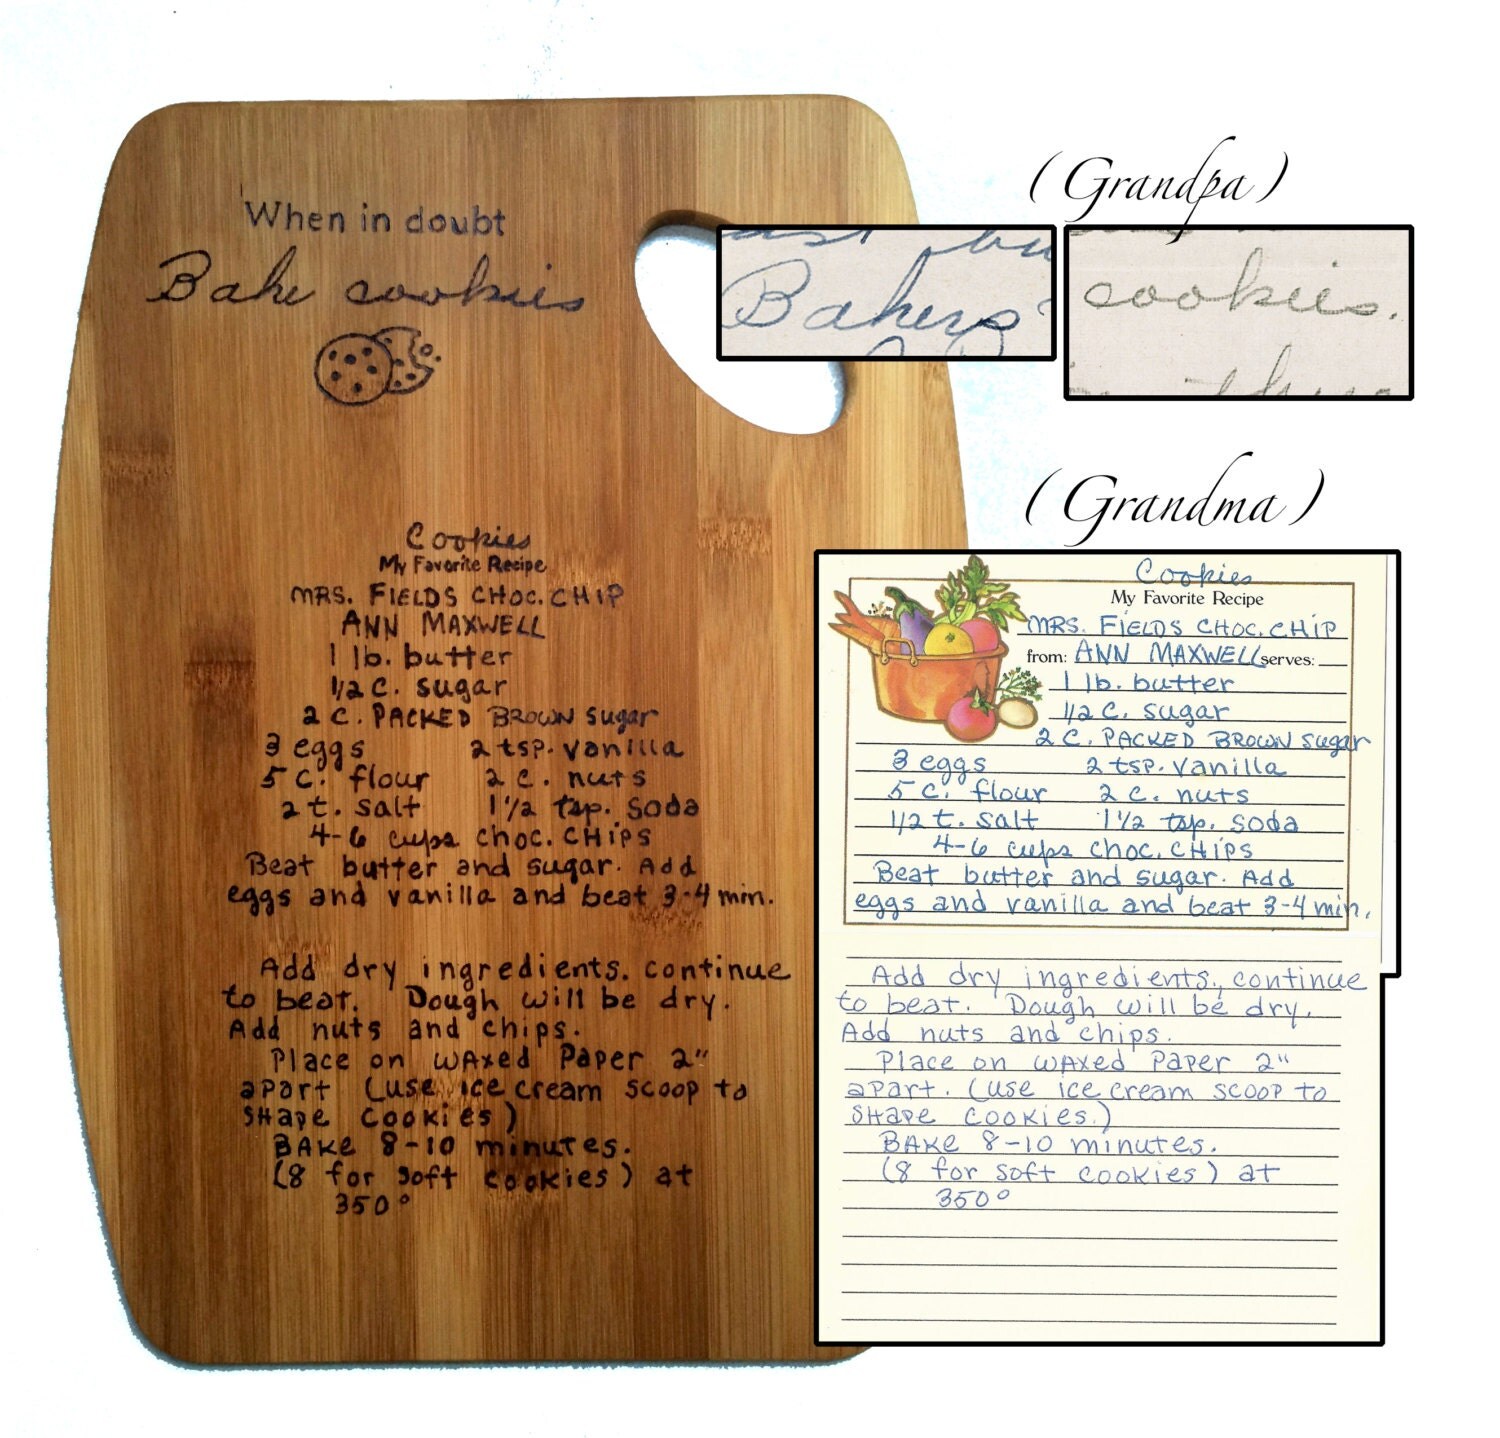 When in doubt
Bake cookies
Cookies
My Favorite Recipe
MRS. FIELDS CHOC. CHIP
ANN MAXWELL
1 lb. butter
1/2 c. sugar
2 C. PACKED BROWN sugar
3 eggs 2 tsp. vanilla
5 c. flour 2 c. nuts
2 t. salt 1 1/2 tsp. soda
4-6 cups choc. CHIPS
Beat butter and sugar. Add
eggs and vanilla and beat 3-4 min.
Add dry ingredients. continue
to beat. Dough will be dry.
Add nuts and chips.
Place on WAXED Paper 2"
apart (use ice cream scoop to
SHAPE cookies)
BAKE 8-10 minutes.
(8 for soft cookies) at
350°
(Grandpa)
Bakers
cookies.
(Grandma)
Cookies
My Favorite Recipe
MRS. FIELDS CHOC. CHIP
from: ANN MAXWELL serves:
1 lb. butter
1/2 c. sugar
2 C. PACKED BROWN sugar
3 eggs 2 tsp. vanilla
5 c. flour 2 c. nuts
1/2 t. salt 1 1/2 tsp. soda
4-6 cups choc. CHIPS
Beat butter and sugar. Add
eggs and vanilla and beat 3-4 min.
Add dry ingredients, continue
to beat. Dough will be dry.
Add nuts and chips.
Place on WAXED Paper 2"
apart. (use ice cream scoop to
SHAPE cookies.)
BAKE 8-10 minutes.
(8 for soft cookies) at
350°